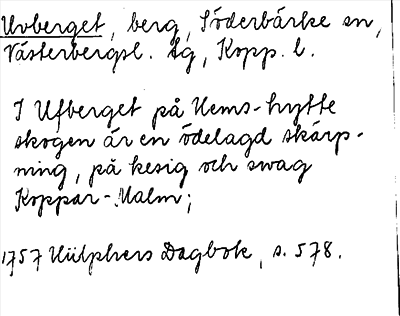 Uvberget, berg, Söderbärke sn,
Västerbergsl. dg, Kopp. l.
I Ufberget på Hems-hytte
skogen är en ödelagd skärp-
ning, på kesig och swag
Koppar-Malm;
1757 Hülphers Dagbok, s. 578.